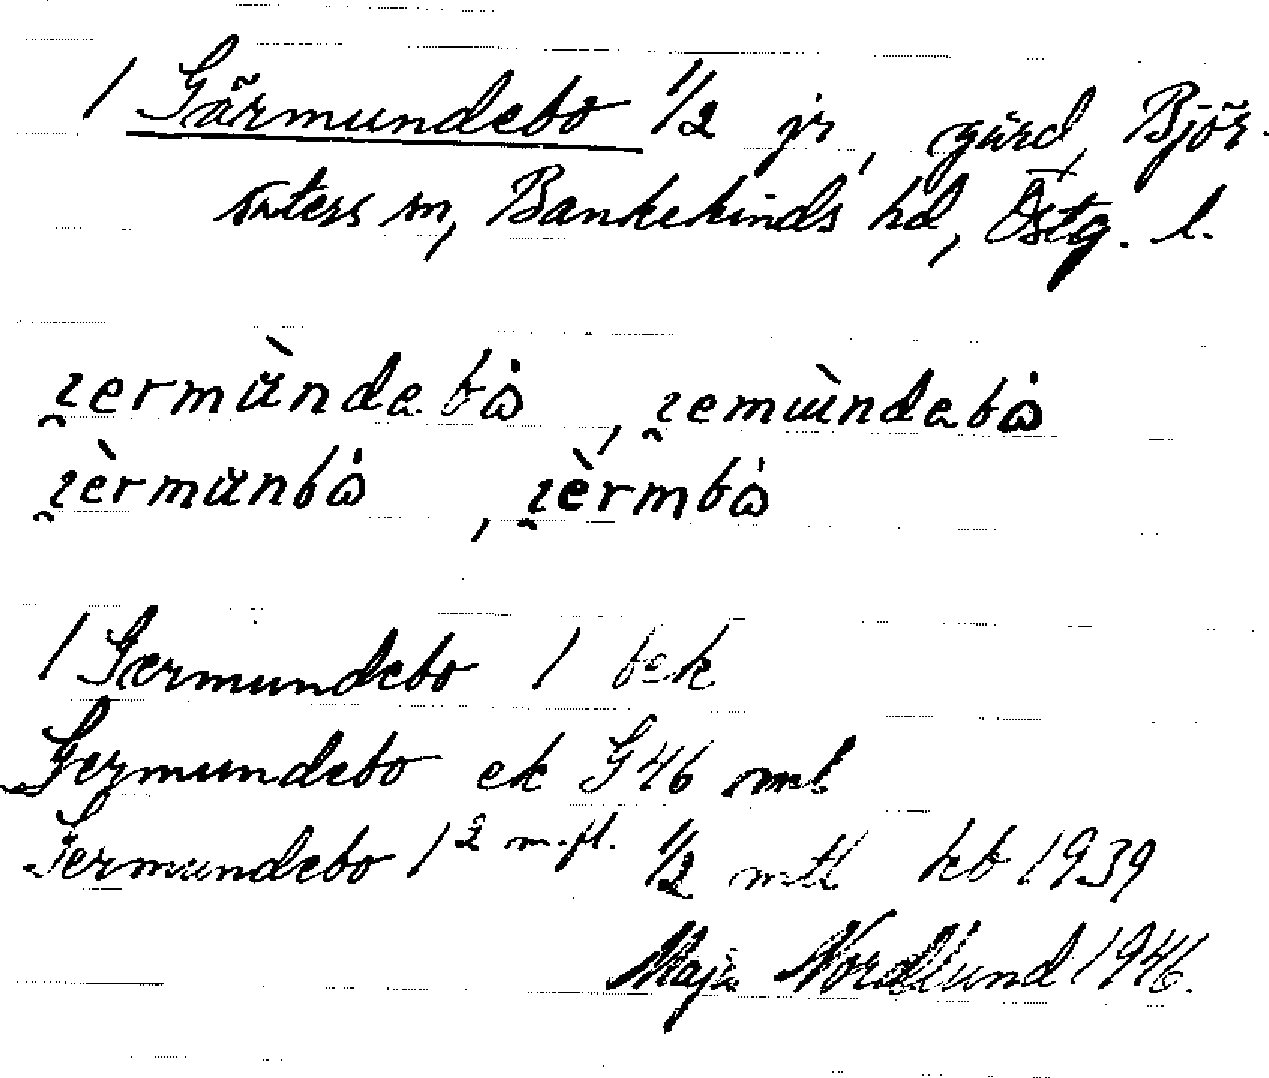 1 Gärmundebo 1/2 jr, gård, Björ-
säters sn, Bankekinds hd, Östg. l.
ɀermùndebȯ, ɀemùndebȯ
ɀèrmunbȯ, ɀèrmbȯ
1 Germundebo 1 bek
Germundebo ek G46 mtl
Germundebo 1² m.fl. 1/2 mtl kb 1939
Maja Nordlund 1946.